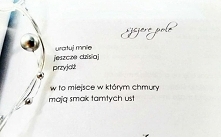 szczere pole
uratuj mnie
jeszcze dzisiaj
przyjdź
w to miejsce w którym chmury
mają smak tamtych ust